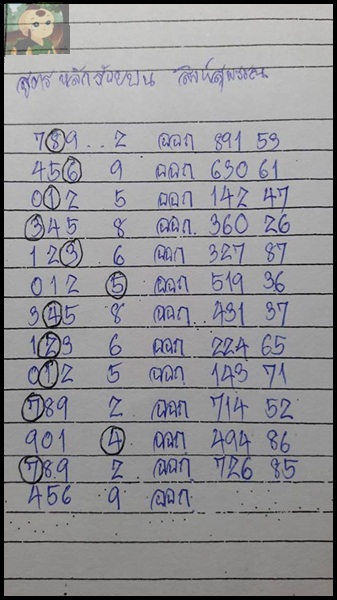 สูตร หลักร้อยบน
789 2 ออก 891 53
456 9 ออก 630 61
012 5 ออก 142 47
345 8 ออก 360 26
123 6 ออก 327 87
012 5 ออก 519 36
345 8 ออก 431 37
123 6 ออก 224 65
012 5 ออก 143 71
789 2 ออก 714 52
901 4 ออก 494 86
789 2 ออก 726 85
456 9 ออก